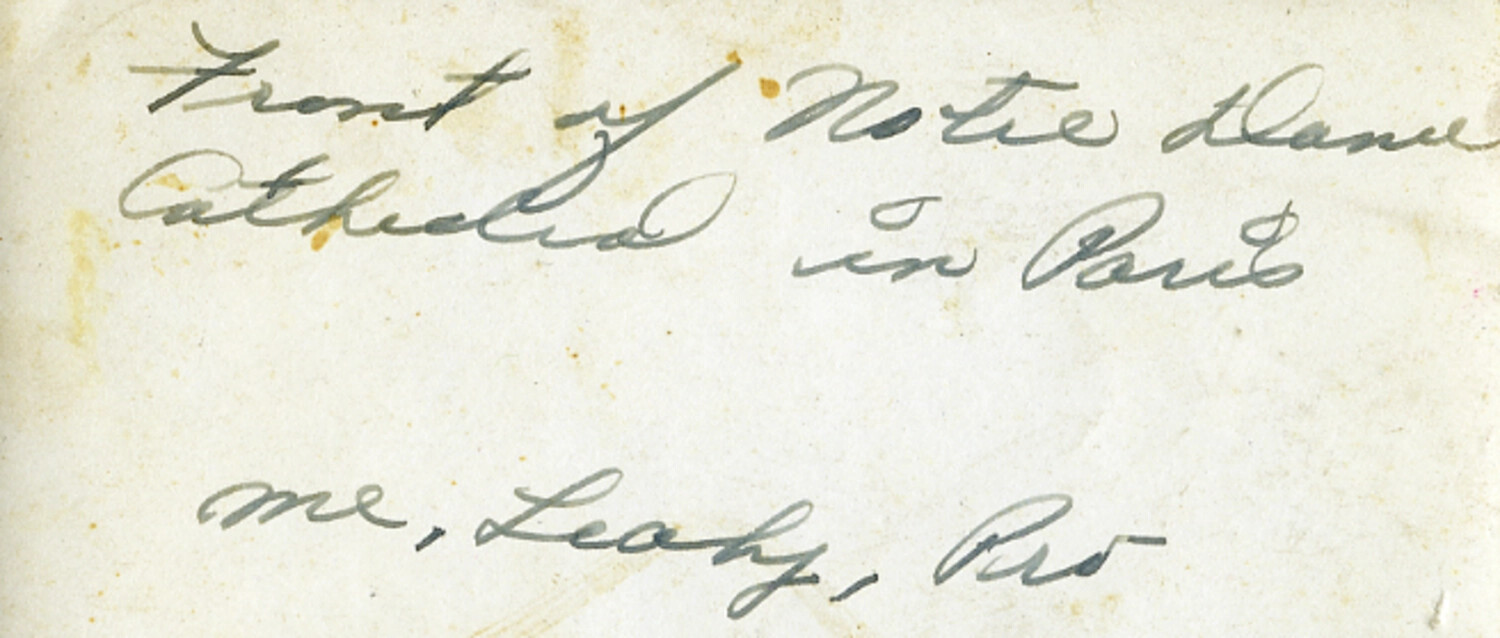 Front of Notre Dame
Cathedral in Paris
me, Leahy, Pro